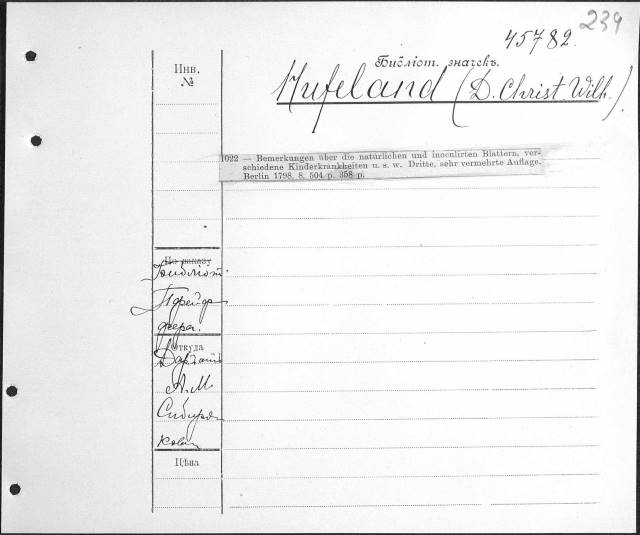 239
45782.
Библіот. значекъ.
Инв.
№
Hufeland (D. Christ. Wilh.)
1022 — Bemerkungen über die natürlichen und inoculirten Blattern, ver-
schiedene Kinderkrankheiten u. s. w. Dritte, sehr vermehrte Auflage.
Berlin 1798. 8. 504 p. 358 p.
По заказу
Библіот.
Пфейф
фера.
Откуда
А. М.
Сибиря
кова
Цѣна